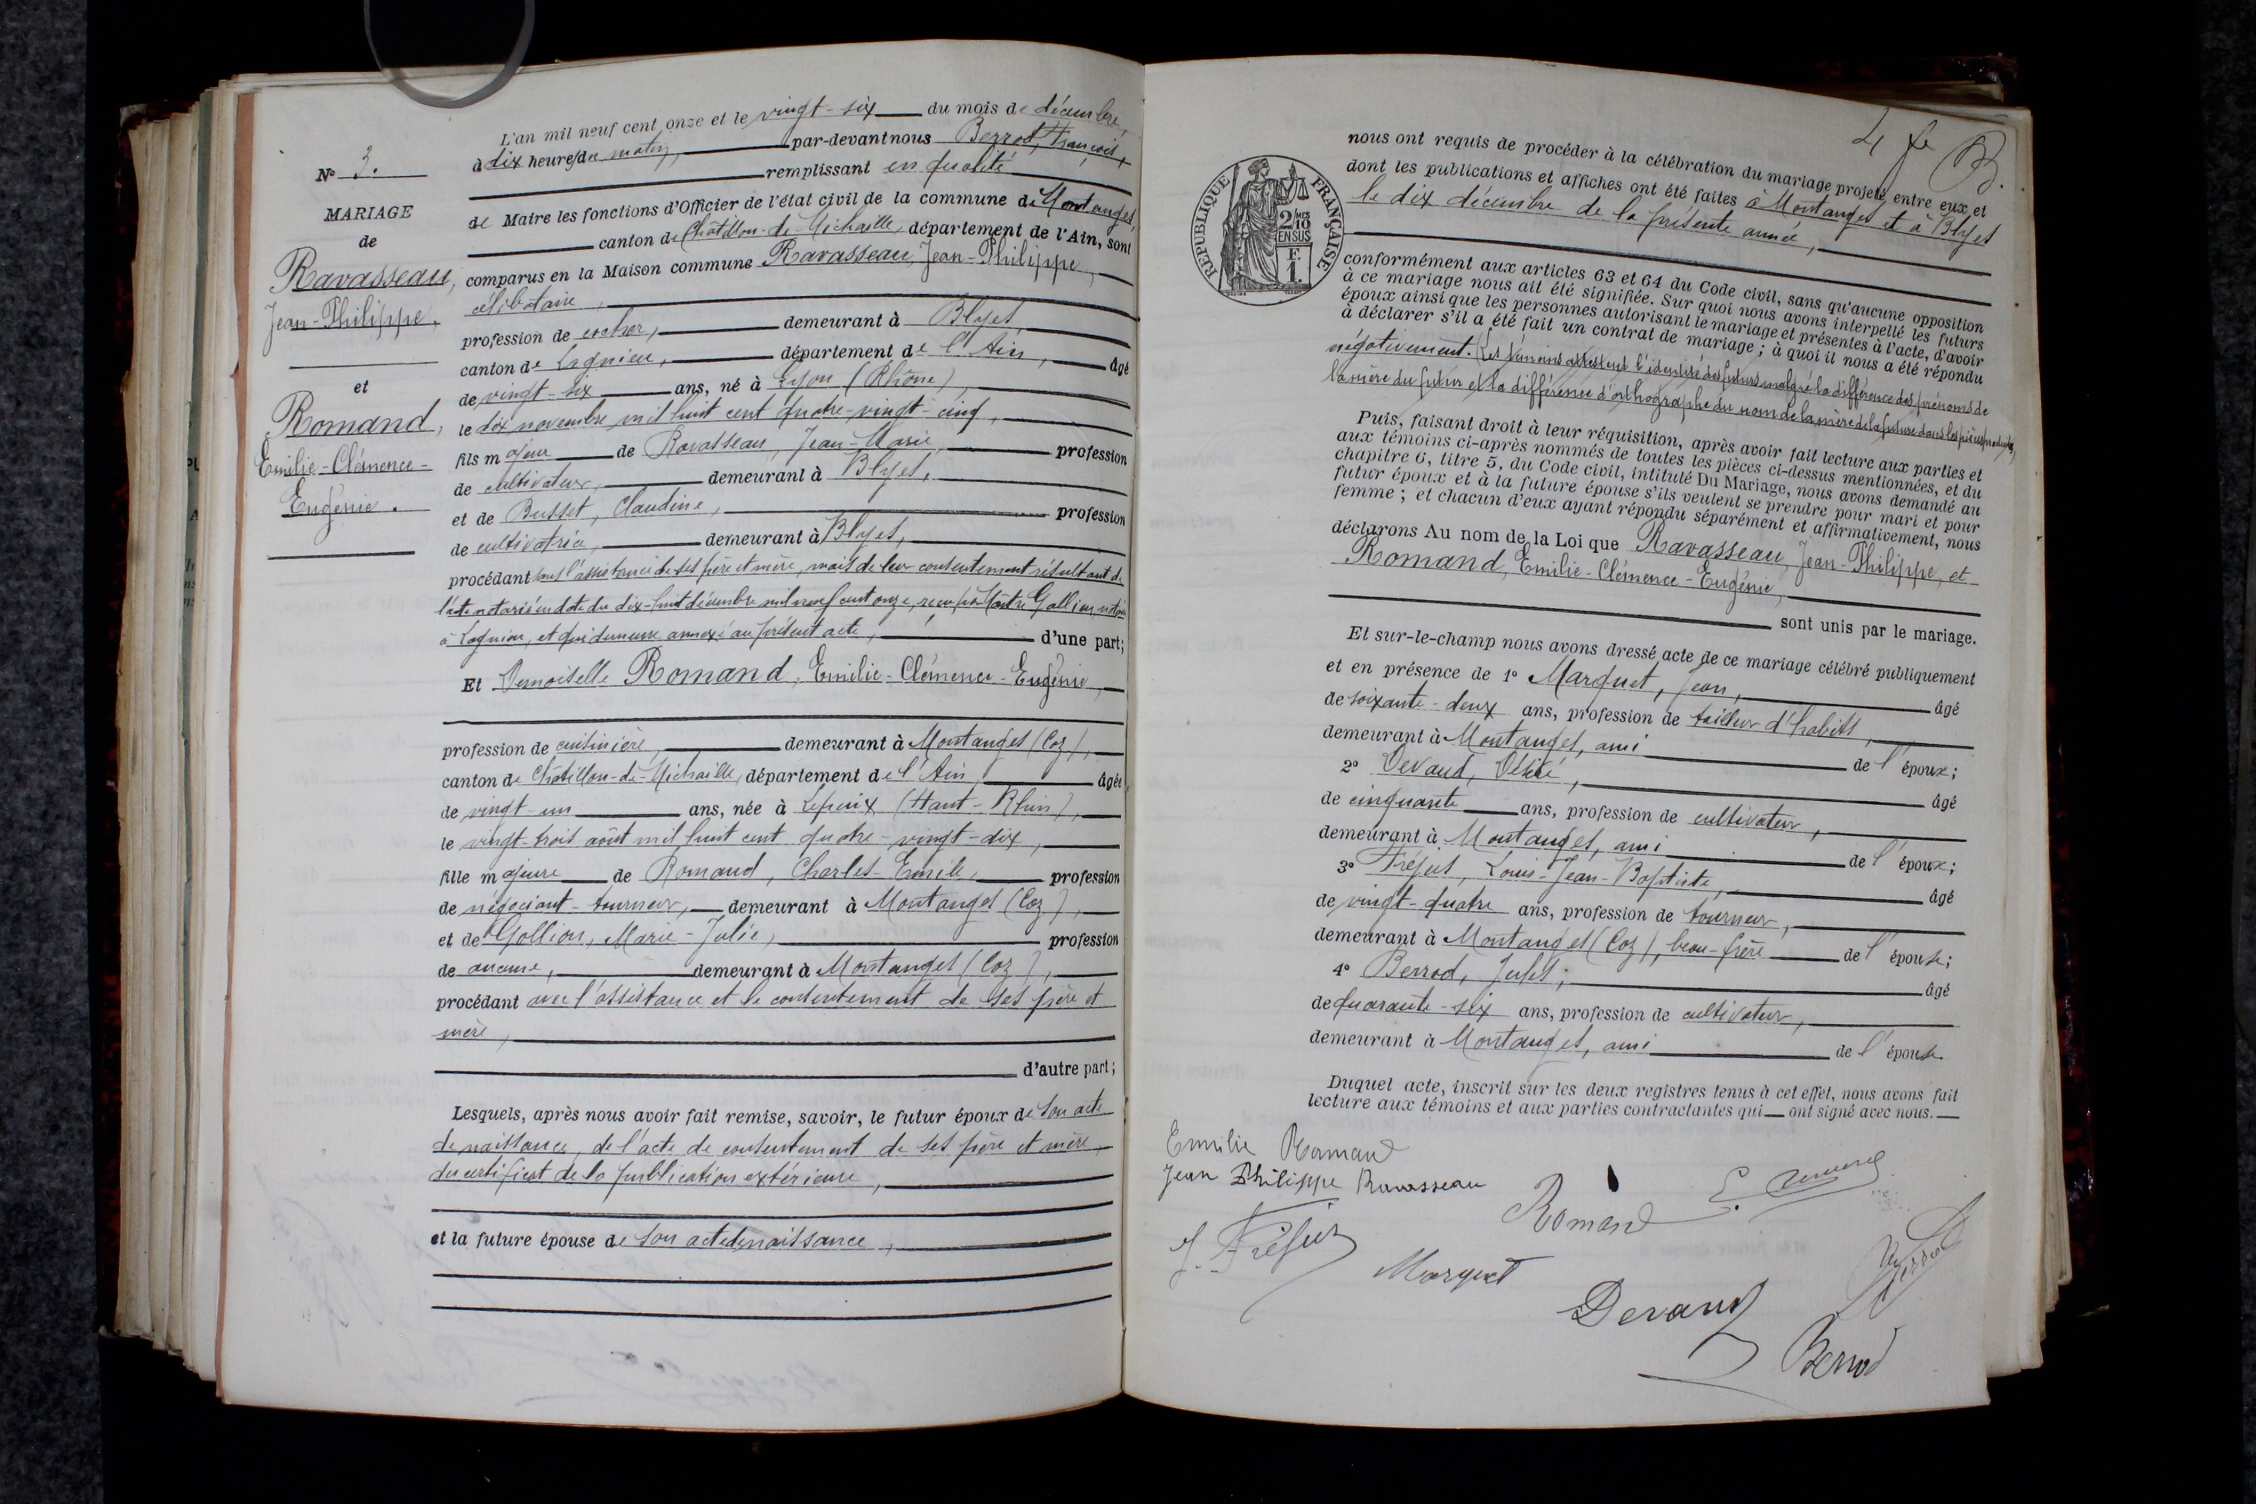 L'an mil neuf cent onze et le vingt-six du mois de décembre,
à dix heures du matin, par-devant nous Berrod, François,
remplissant en qualité
de Maire les fonctions d'Officier de l'état civil de la commune de Montanges,
canton de Châtillon-de-Michaille, département de l'Ain, sont
comparus en la Maison commune Ravasseau, Jean-Philippe,
célibataire,
profession de cocher, demeurant à Blyes,
canton de Lagnieu, département de l'Ain, âgé
de vingt-six ans, né à Lyon (Rhône),
le dix novembre mil huit cent quatre-vingt-cinq,
fils majeur de Ravasseau, Jean-Marie, profession
de cultivateur, demeurant à Blyes,
et de Busset, Claudine, profession
de cultivatrice, demeurant à Blyes,
procédant sans l'assistance de ses père et mère, mais de leur consentement résultant de
l'acte notarié en date du dix-huit décembre mil neuf cent onze, reçu par Maître Gallion, notaire
à Lagnieu, et qui demeure annexé au présent acte, d'une part;
Et Demoiselle Romand, Emilie-Clémence-Eugénie,
profession de cuisinière, demeurant à Montanges (Coz),
canton de Châtillon-de-Michaille, département de l'Ain, âgée
de vingt-un ans, née à Lepuix (Haut-Rhin),
le vingt-trois août mil huit cent quatre-vingt-dix,
fille majeure de Romand, Charles-Emile, profession
de négociant-tourneur, demeurant à Montanges (Coz),
et de Gollion, Marie-Julie, profession
de aucune, demeurant à Montanges (Coz),
procédant avec l'assistance et le consentement de ses père et
mère,
d'autre part;
Lesquels, après nous avoir fait remise, savoir, le futur époux de son acte
de naissance, de l'acte de consentement de ses père et mère,
du certificat de la publication extérieure,
et la future épouse de son acte de naissance,
N° 3.
MARIAGE
de
Ravasseau,
Jean-Philippe,
et
Romand,
Emilie-Clémence-
Eugénie.
4 B.
nous ont requis de procéder à la célébration du mariage projeté entre eux et
dont les publications et affiches ont été faites à Montanges et à Blyes
le dix décembre de la présente année,
RÉPUBLIQUE FRANÇAISE
2/10 EN SUS
F. 1.
conformément aux articles 63 et 64 du Code civil, sans qu'aucune opposition
à ce mariage nous ait été signifiée. Sur quoi nous avons interpellé les futurs
époux ainsi que les personnes autorisant le mariage et présentes à l'acte, d'avoir
à déclarer s'il a été fait un contrat de mariage; à quoi il nous a été répondu
négativement. Les témoins attestent l'identité des futurs malgré la différence des prénoms de
la mère du futur et la différence d'orthographe du nom de la mère de la future dans les pièces produites,
Puis, faisant droit à leur réquisition, après avoir fait lecture aux parties et
aux témoins ci-après nommés de toutes les pièces ci-dessus mentionnées, et du
chapitre 6, titre 5, du Code civil, intitulé Du Mariage, nous avons demandé au
futur époux et à la future épouse s'ils veulent se prendre pour mari et pour
femme; et chacun d'eux ayant répondu séparément et affirmativement, nous
déclarons Au nom de la Loi que Ravasseau, Jean-Philippe, et
Romand, Emilie-Clémence-Eugénie,
sont unis par le mariage.
Et sur-le-champ nous avons dressé acte de ce mariage célébré publiquement
et en présence de 1° Marquet, Jean, âgé
de soixante-deux ans, profession de tailleur d'habits,
demeurant à Montanges, ami de l'époux;
2° Devaud, Désiré, âgé
de cinquante ans, profession de cultivateur,
demeurant à Montanges, ami de l'époux;
3° Tréfus, Louis-Jean-Baptiste, âgé
de vingt-quatre ans, profession de tourneur,
demeurant à Montanges (Coz), beau-frère de l'épouse;
4° Berrod, Jules, âgé
de quarante-six ans, profession de cultivateur,
demeurant à Montanges, ami de l'épouse.
Duquel acte, inscrit sur les deux registres tenus à cet effet, nous avons fait
lecture aux témoins et aux parties contractantes qui ont signé avec nous.
Emilie Romand
Jean Philippe Ravasseau
Romand
Marquet
Devaud
Berrod